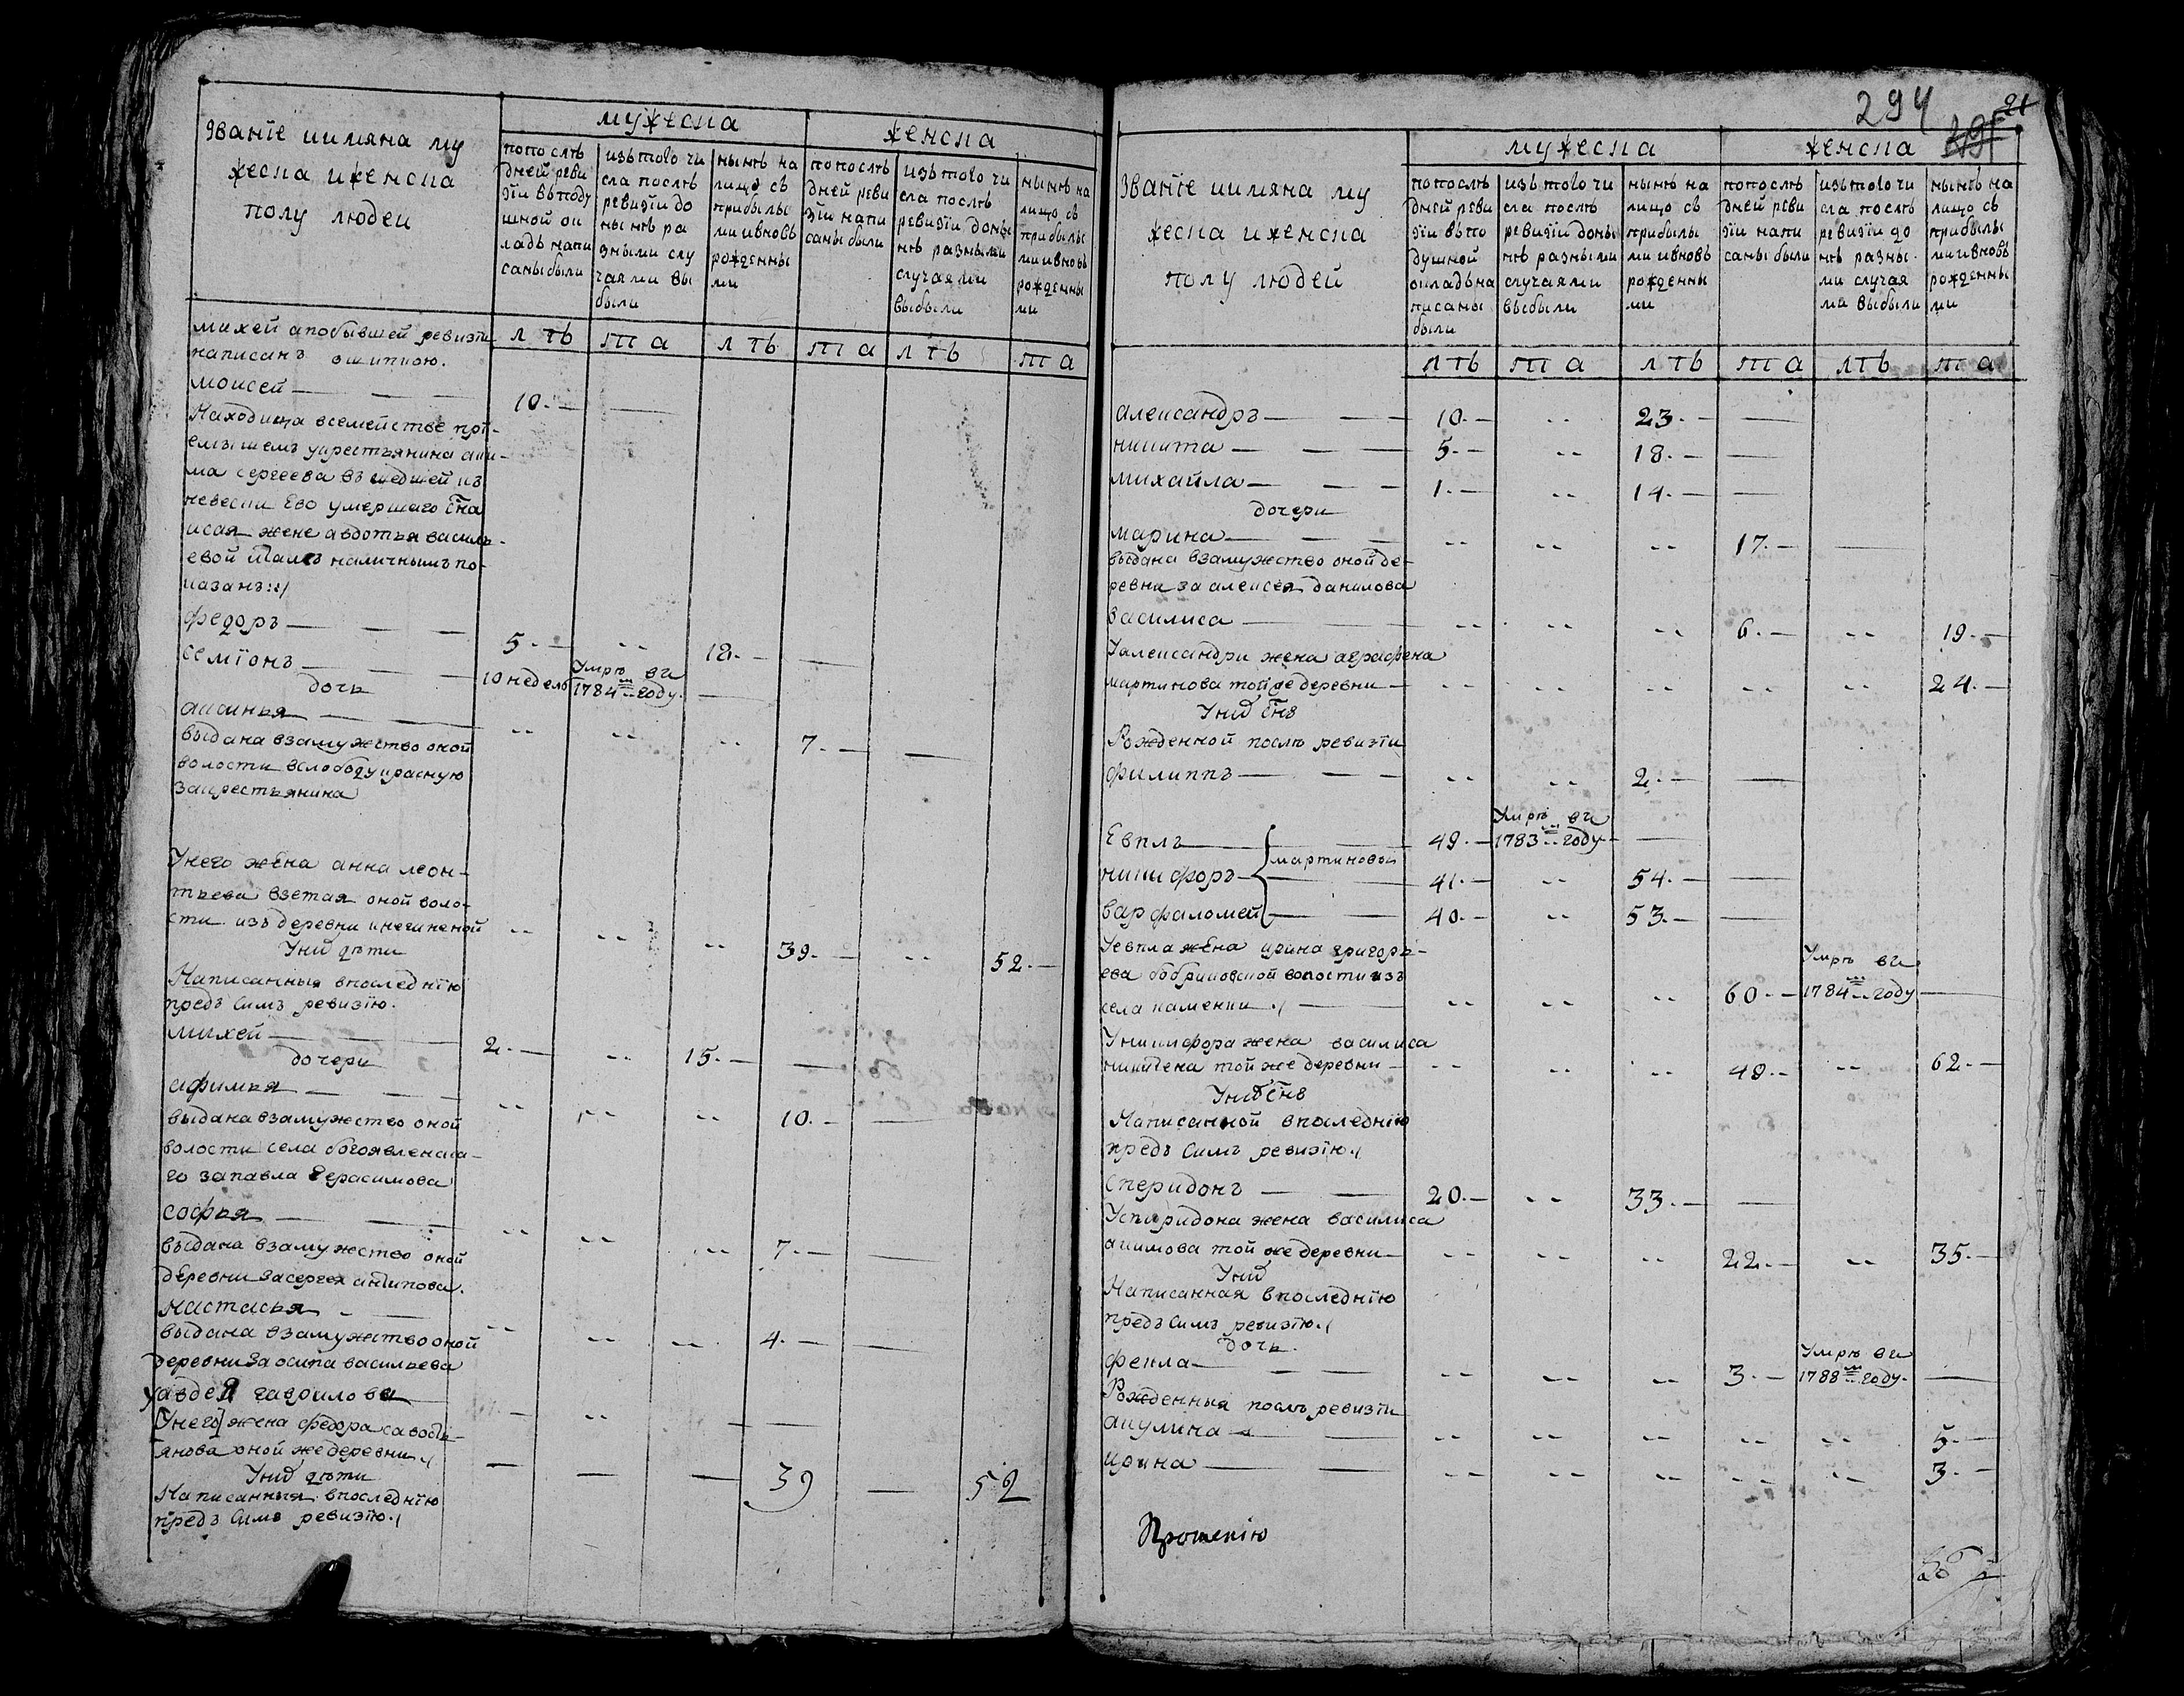 званїе иимяна му
жеска иженска
полу людеи
мужеска
женска
попослѣ
дней реви
зїи вьподу
шной ок
ладъ напи
саны были
изътого чи
сла послѣ
ревизїи до
нынѣ ра
зными слу
чаями вы
были
нынѣ на
лицо съ
прибылы
ми ивновь
рожденны
ми
попослѣ
дней реви
зїи напи
саны были
изътого чи
сла послѣ
ревизїи доны
нѣ разными
случаями
выбыли
нынѣ на
лицо съ
прибылы
ми ивновь
рожденны
ми
л ѣ т а л ѣ т а л ѣ т а
михей апобывшей ревизїи
написанъ
моисей 10.
Находица всемействе прї-
емышемъ укрестьянина аки-
ма сергеева въшедшей из
невески Ево умершаго сна
исая жене авдотья василь-
евой итамъ наличнымъ по-
казанъ
федоръ 5. 18.
семїонъ 10 недель Умре въ 1784 году.
дочь
аксинья 7.
выдана взамужество оной
волости вслободу красную
закрестьянина
Унего жена анна леон-
тьева взетая оной воло-
сти изъ деревни кнегиненой 39. 52.
Унихъ дѣти
Написанныя впоследнїю
предъ симъ ревизїю.
михей 2. 15.
дочери
афимья 10.
выдана взамужество оной
волости села богоявленска-
го запавла Герасимова
софья 7.
выдана взамужество оной
деревни засергея антипова.
настасья 4.
выдана взамужество оной
деревни за осипа васильева
уавдея гаврилова
Унего жена федора савость-
янова оной жедеревни 39 52
Унихъ дѣти
Написанныя впоследнїю
предъ симъ ревизїю.
294
21
званїе иимяна му
жеска иженска
полу людей
мужеска
женска
попослѣ
дней реви
зїи въпо
душной
окладъна
писаны
были
изътого чи
сла послѣ
ревизїи доны
нѣ разными
случаями
выбыли
нынѣ на
лицо съ
прибылы
ми ивновь
рожденны
ми
попослѣ
дней реви
зїи напи
саны были
изътого чи
сла послѣ
ревизїи до
нѣ разны
ми случая
ми выбыли
нынѣ на
лицо съ
прибылы
ми ивновь
рожденны
ми
л ѣ т а л ѣ т а л ѣ т а
александръ 10. 23.
никита 5. 18.
михайла 1. 14.
дочери
марина 17.
выдана взамужество оной де-
ревни за алексея данилова
василиса 6. 19.
Уалександри жена аграфена
мартинова той же деревни 24.
Унихъ снъ
Рожденной послѣ ревизїи
филиппъ 2.
Евплъ 49. Умре въ 1783 году
мартиновы
никифоръ 41. 54.
варфаломей 40. 53.
Уевпла жена ирина григорь-
ева бобриковской волости изъ
села каменки 60. Умре въ 1784 году
Уникифора жена василиса
никитена той же деревни 49. 62.
Унихъ снъ
Написанной впоследнїю
предъ симъ ревизїю.
спередонъ 20. 33.
Успиридона жена василиса
акимова той же деревни 22. 35.
Унихъ
Написанная впоследнїю
предъ симъ ревизїю.
дочь.
фекла 3. Умре въ 1788 году.
Рожденныя послѣ ревизїи
акулина 5.
ирина 3.